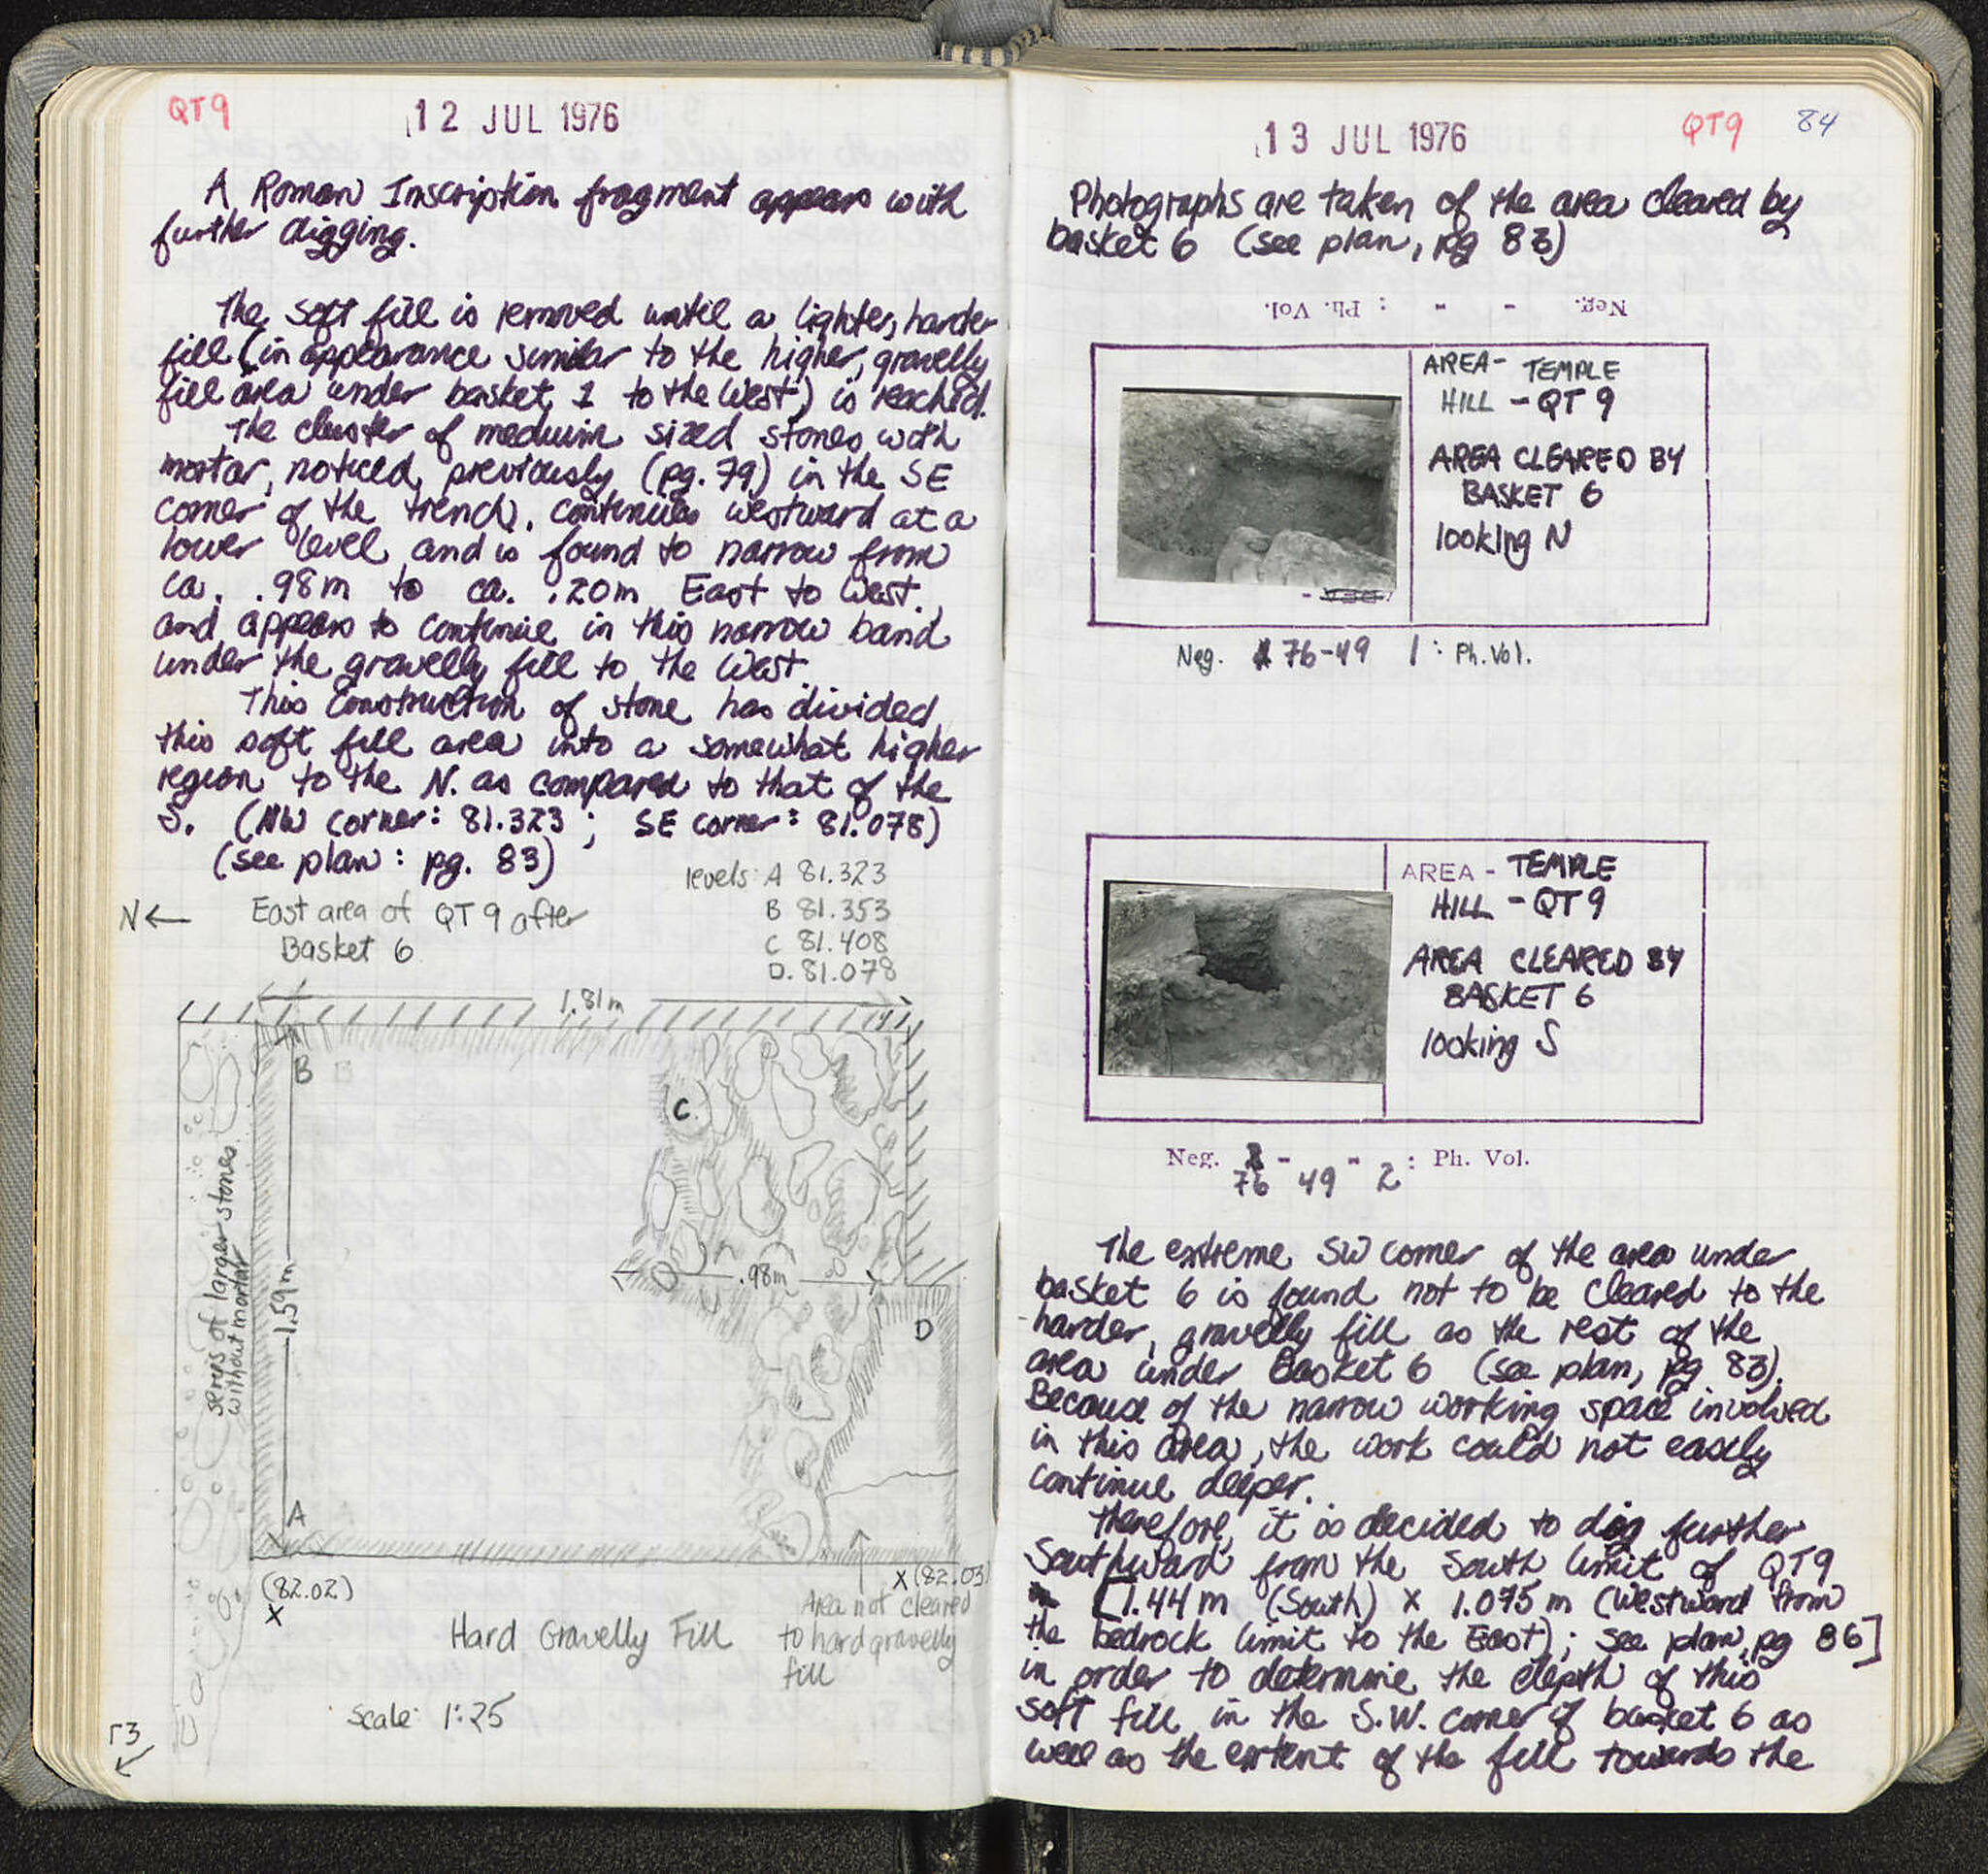 QT9
12 JUL 1976
A Roman Inscription fragment appears with
further digging.
The soft fill is removed until a lighter, harder
fill (in appearance similar to the higher, gravelly
fill area under basket 1 to the West) is reached.
The cluster of medium sized stones with
mortar, noticed previously (pg. 79) in the SE
corner of the trench, continues westward at a
lower level and is found to narrow from
ca. .98m to ca. .20m East to West,
and appears to continue in this narrow band
under the gravelly fill to the West.
This construction of stone has divided
this soft fill area into a somewhat higher
region to the N. as compared to that of the
S. (NW corner: 81.323; SE corner: 81.078)
(see plan: pg. 83)
levels: A 81.323
B 81.353
C 81.408
D. 81.078
N←
East area of QT 9 after
Basket 6
1.81m
B
C
series of larger stones
without mortar
1.59m
.98m
D
A
(82.02)
X
X (82.03
Area not cleared
to hard gravelly
fill
Hard Gravelly Fill
Scale: 1:25
Γ3
QT9
84
13 JUL 1976
Photographs are taken of the area cleared by
basket 6 (see plan, pg 83)
Neg. - - : Ph. Vol.
AREA- TEMPLE
HILL - QT 9
AREA CLEARED BY
BASKET 6
looking N
Neg. 76-49 1: Ph. Vol.
AREA - TEMPLE
HILL - QT9
AREA CLEARED BY
BASKET 6
looking S
Neg. - - : Ph. Vol.
76 49 - 2
The extreme SW corner of the area under
basket 6 is found not to be cleared to the
harder, gravelly fill as the rest of the
area under Basket 6 (see plan, pg 83).
Because of the narrow working space involved
in this area, the work could not easily
continue deeper.
Therefore, it is decided to dig further
Southward from the South limit of QT9
[1.44m (South) x 1.075m (Westward from
the bedrock limit to the East); see plan, pg 86]
in order to determine the depth of this
soft fill in the S.W. corner of basket 6 as
well as the extent of the fill towards the